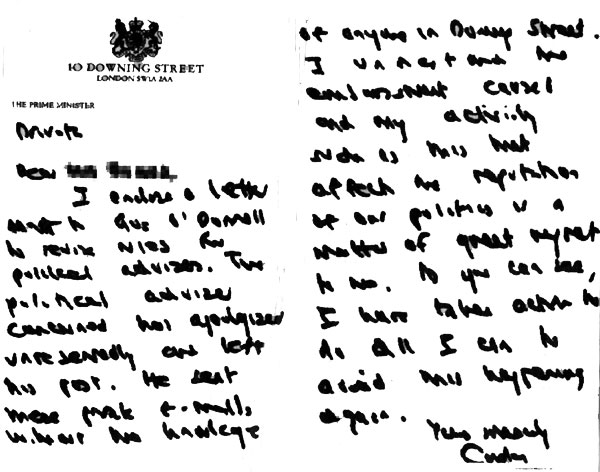 10 DOWNING STREET
LONDON SW1A 2AA
THE PRIME MINISTER
Private
Dear
I enclose a letter
sent to Gus O'Donnell
to revise rules for
political advisers. The
political adviser
concerned has apologised
unreservedly and left
his post. He sent
these private e-mails
without the knowledge
of anyone in Downing Street.
I understand the
embarrassment caused
and any activity
such as this that
affects the reputation
of our politics is a
matter of great regret
to me. As you can see,
I have taken action to
do all I can to
avoid this happening
again.
Yours sincerely
Gordon